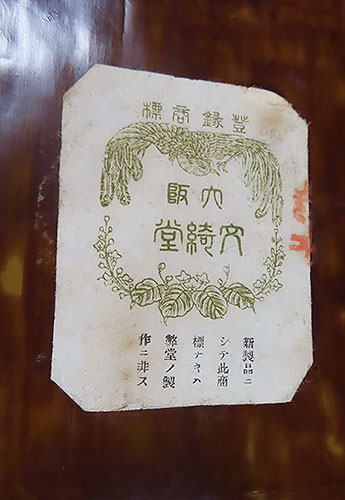 登録商標
大阪
文綺堂
新製品ニ
シテ此商
標ナキハ
弊堂ノ製
作ニ非ス